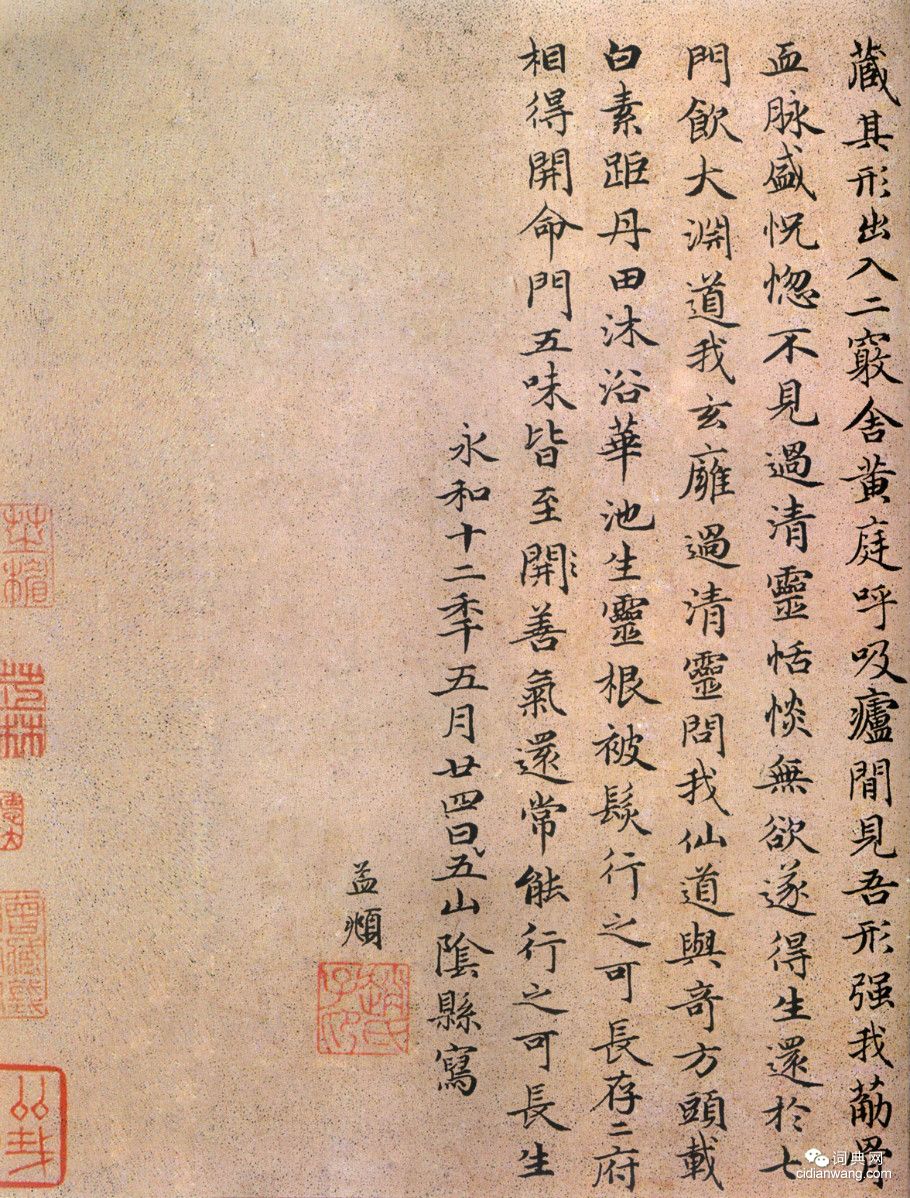 藏其形出入二竅舍黃庭呼吸廬間見吾形强我筋骨
血脉盛怳惚不見過清靈恬惔無欲遂得生還於七
門飲大淵道我玄廱過清靈問我仙道與奇方頭載
白素距丹田沐浴華池生靈根被髮行之可長存二府
相得開命門五味皆至開善氣還常能行之可長生
永和十二年五月廿四日五山陰縣寫
孟頫
趙氏子昂
词典网
cidianwang.com